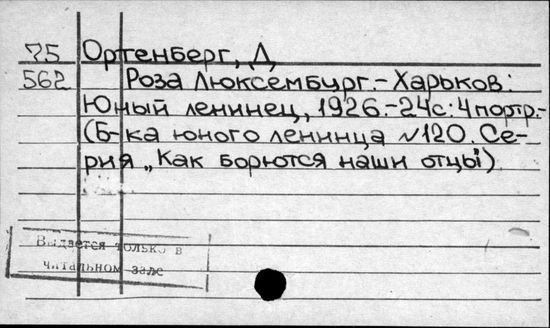 75 Ортенберг, Д
562 Роза Люксембург.-Харьков:
Юный ленинец, 1926.-24с: 4 портр.-
(Б-ка юного ленинца №120. Се-
рия „Как борются наши отцы)
Выдается только в
читальном зале